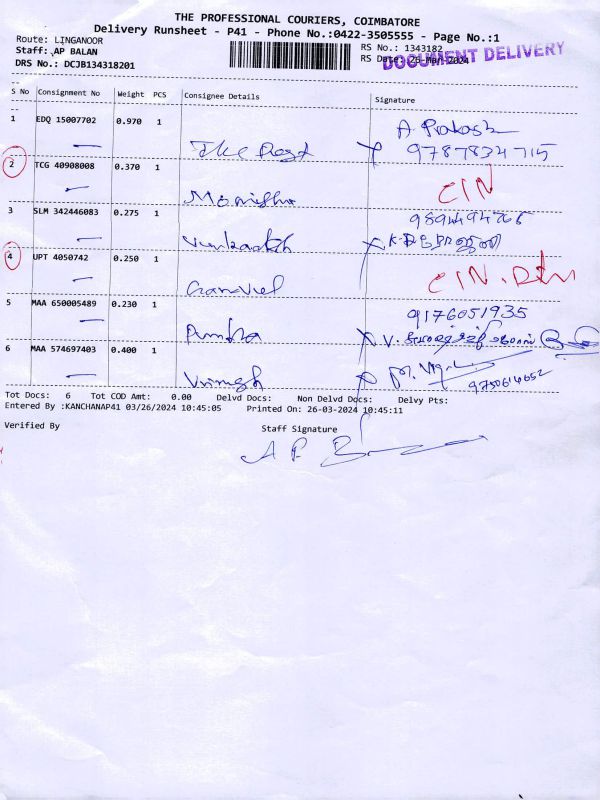 THE PROFESSIONAL COURIERS, COIMBATORE
Delivery Runsheet - P41 - Phone No.:0422-3505555 - Page No.:1
Route: LINGANOOR
Staff: AP BALAN
DRS No.: DCJB134318201
RS No.: 1343182
RS Date: 26-Mar-2024
DOCUMENT DELIVERY
S No Consignment No Weight PCS Consignee Details Signature
1 EDQ 15007702 0.970 1
A Prakash
9787834715
2 TCG 40908008 0.370 1
CIN
3 SLM 342446083 0.275 1
Venkatesh
4 UPT 4050742 0.250 1
CIN.
5 MAA 650005489 0.230 1
9176051935
6 MAA 574697403 0.400 1
9750614652
Tot Docs: 6 Tot COD Amt: 0.00 Delvd Docs: Non Delvd Docs: Delvy Pts:
Entered By :KANCHANAP41 03/26/2024 10:45:05 Printed On: 26-03-2024 10:45:11
Verified By Staff Signature